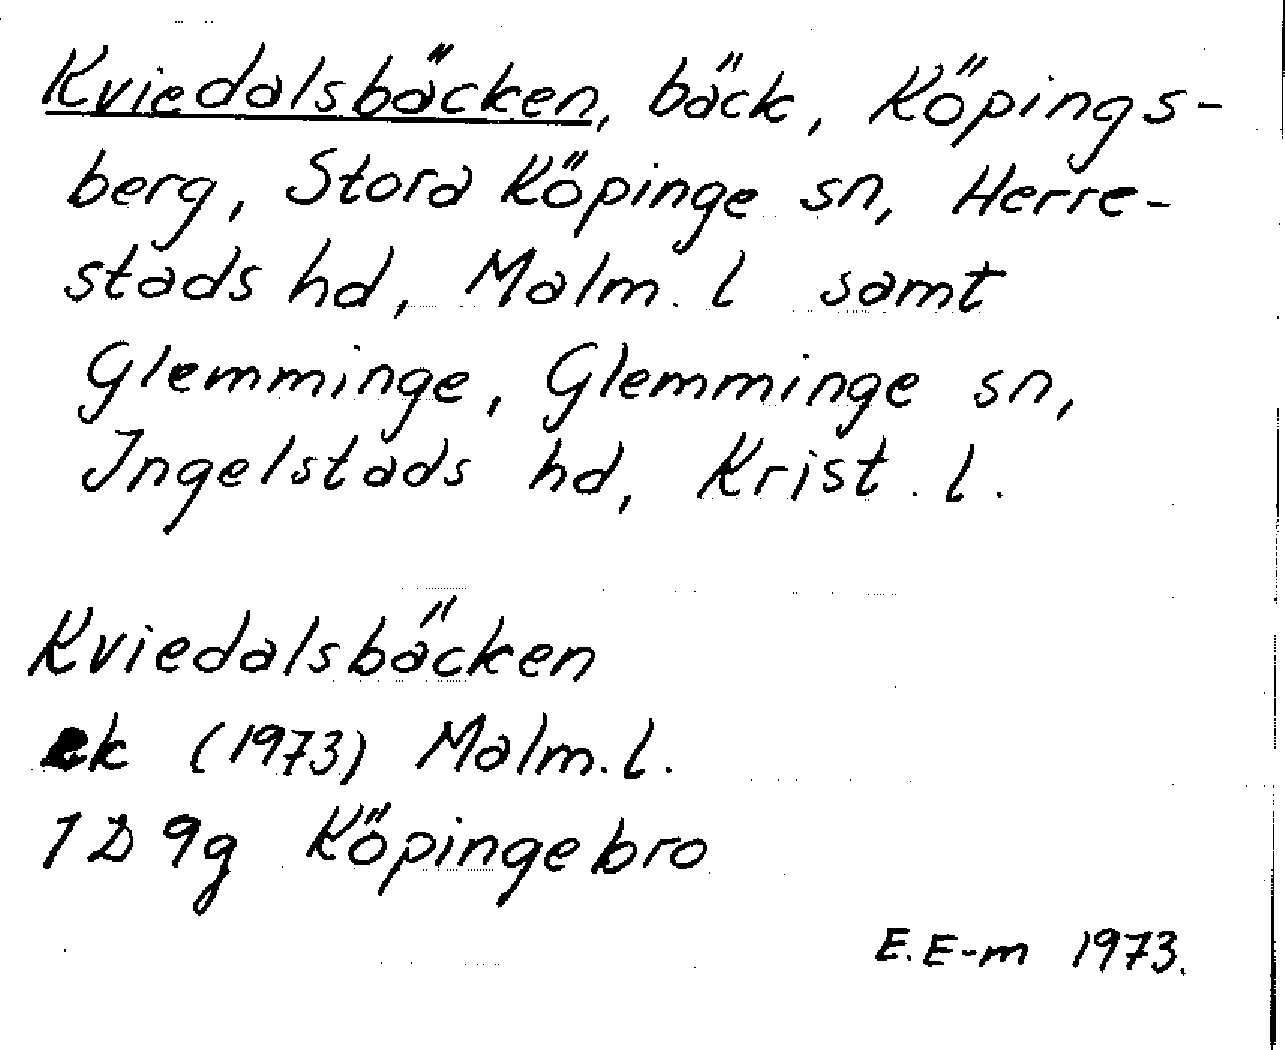 Kviedalsbäcken, bäck, Köpings-
berg, Stora Köpinge sn, Herre-
stads hd, Malm. l samt
Glemminge, Glemminge sn,
Ingelstads hd, Krist. l.
Kviedalsbäcken
ek (1973) Malm. l.
1D 9g Köpingebro
E. E-m 1973.